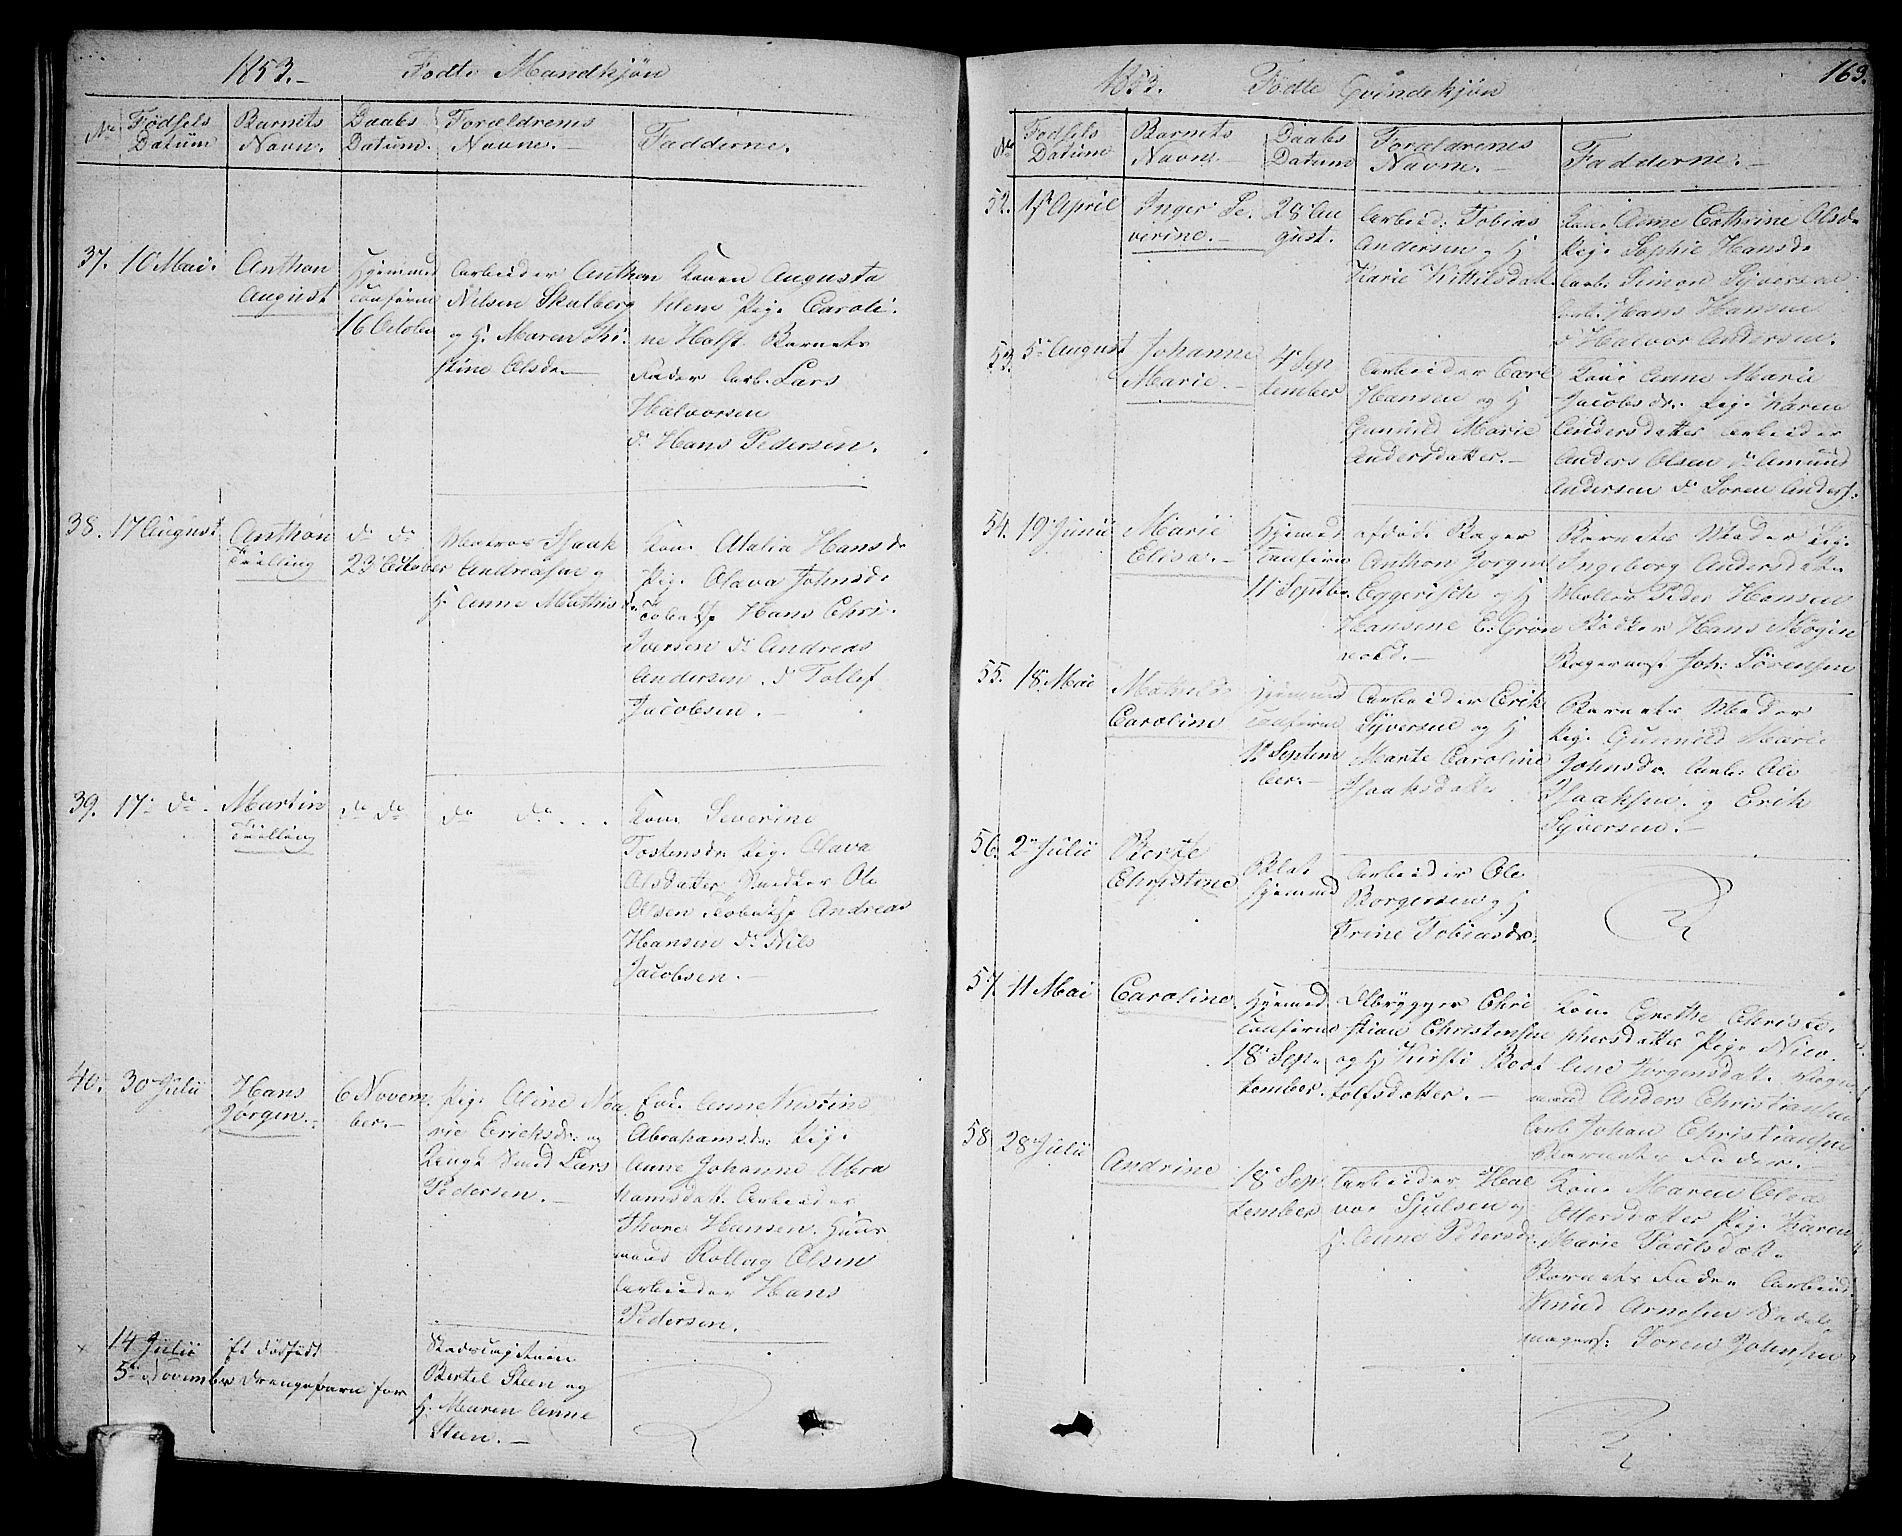 1853.- Fødte Mandkjøn
No Fødsels Datum Barnets Navn. Daabs Datum. Forældrenes Navne.- Fadderne.
37. 10 Mai. Anthon August Hjemmed confirm 16 October
Arbeider Anthon
Nilsen Skalberg
og H. Maren Kri-
stine Olsdr.-
Konen Augusta
Pige Caroli-
ne Holst. Barnets
Fader Arb. Lars
Halvorsen
do Hans Pedersen.
38. 17 August Anthon Tvilling do do 23 October
Matros Isaak
Andreasen og
H. Anne Mathisd.
Kone Atalia Hansdr
Pige Olava Johnsdr
Hans Chri.
Iversen do Andreas
Andersen. do Tollef
Jacobsen.-
39. 17. do. Martin Tvilling do do do do
Kone Severine
Tostensdr. Pige Olava
Olsdatter Snedker Ole
Olsen Andreas
Hansen do Nils
Jacobsen.-
40. 30 Julii Hans Jørgen.- 6 Novem- ber.-
Pige Aline Ma-
rie Ericksdr. og
Smed Lars
Pedersen.-
Anne Kirstine
Abrahamsdr. Pige
Anne Johanne Abra
hamsdatt. Arbeider
Thore Hansen. Huus-
mand Rollag Olsen
Arbeider Hans
Pedersen.-
14 Julii et dødfødt
5te November Drengebarn for
Bertel Steen og
H. Maren Anne
Steen.-
1853. Fødte Qvindekjøn 163.
No Fødsels Datum Barnets Navn.- Daabs Datum Forældrenes Navne.- Fadderne.-
52. April Inger Se- verine.- 28 Au gust.
Arbeid. Tobias
Andersen og H
Karie Kittilsdatt.
Kone Anne Cathrine Olsdr
Pige Sophie Hansdr
Arb. Simon Syversen
Arb. Hans Hansen
do Halvor Andersen.
53. 5 August Johanne Marie.- 4 Sep tember
Arbeider Carl
Hansen og H
Gunnild Marie
Andersdatter.-
Kone Anne Marie
Jacobsdr. Pige Karen
Andersdatter Arbeider
Anders Olsen do Amund
Andersen do Soren Anders.
54. 19 Junii Marie Elisa.- Hjemmed confirm 11 Septbr.
afdøde Bager
Anthon Jorgen
Eggerisch og H
Hansine E. Grøn
vold.-
Barnets Moder Pige
Ingeborg Andersdatter
Møller Peder Hansen
Bødker Hans Mogen
Bagermest. Joh. Sørensen
55. 18 Mai Mathilde Caroline Hjemmed confirm Septem ber.-
Arbeider Erik
Syversen og H
Marte Caroline
Isaaksdatter
Barnets Moder
Pige Gunnild Marie
Johnsdr. Arb. Ole
Isaaksen. og Erik
Syversen.-
56. 2 Julii Berte Christine Blot hjemmed
Arbeider Ole
Borgersen og H
Trine Tobiasdr.
57. 11 Mai Caroline Hjemmed confirm 18 Sep- tember.
Ølbrygger Chri
stian Christensen
og H Kirsti Boot
tolfsdatter.-
Kone Grethe Christo-
phersdatter Pige Nico-
line Jorgensdatt. Vogn
mand Anders Christiansen
Arb Johan Christiansen
Barnets Fader.-
58. 28 Julii Andrine 18 Sep- tember
Arbeider Hal
vor Sjulsen og
H. Anne Pedersdr.
Kone Maren Olea
Ottersdatter Pige Karen
Marie Paulsdatt.
Barnets Fader Arbeid.
Knud Arnesen Sadel
magers. Soren Johnsen